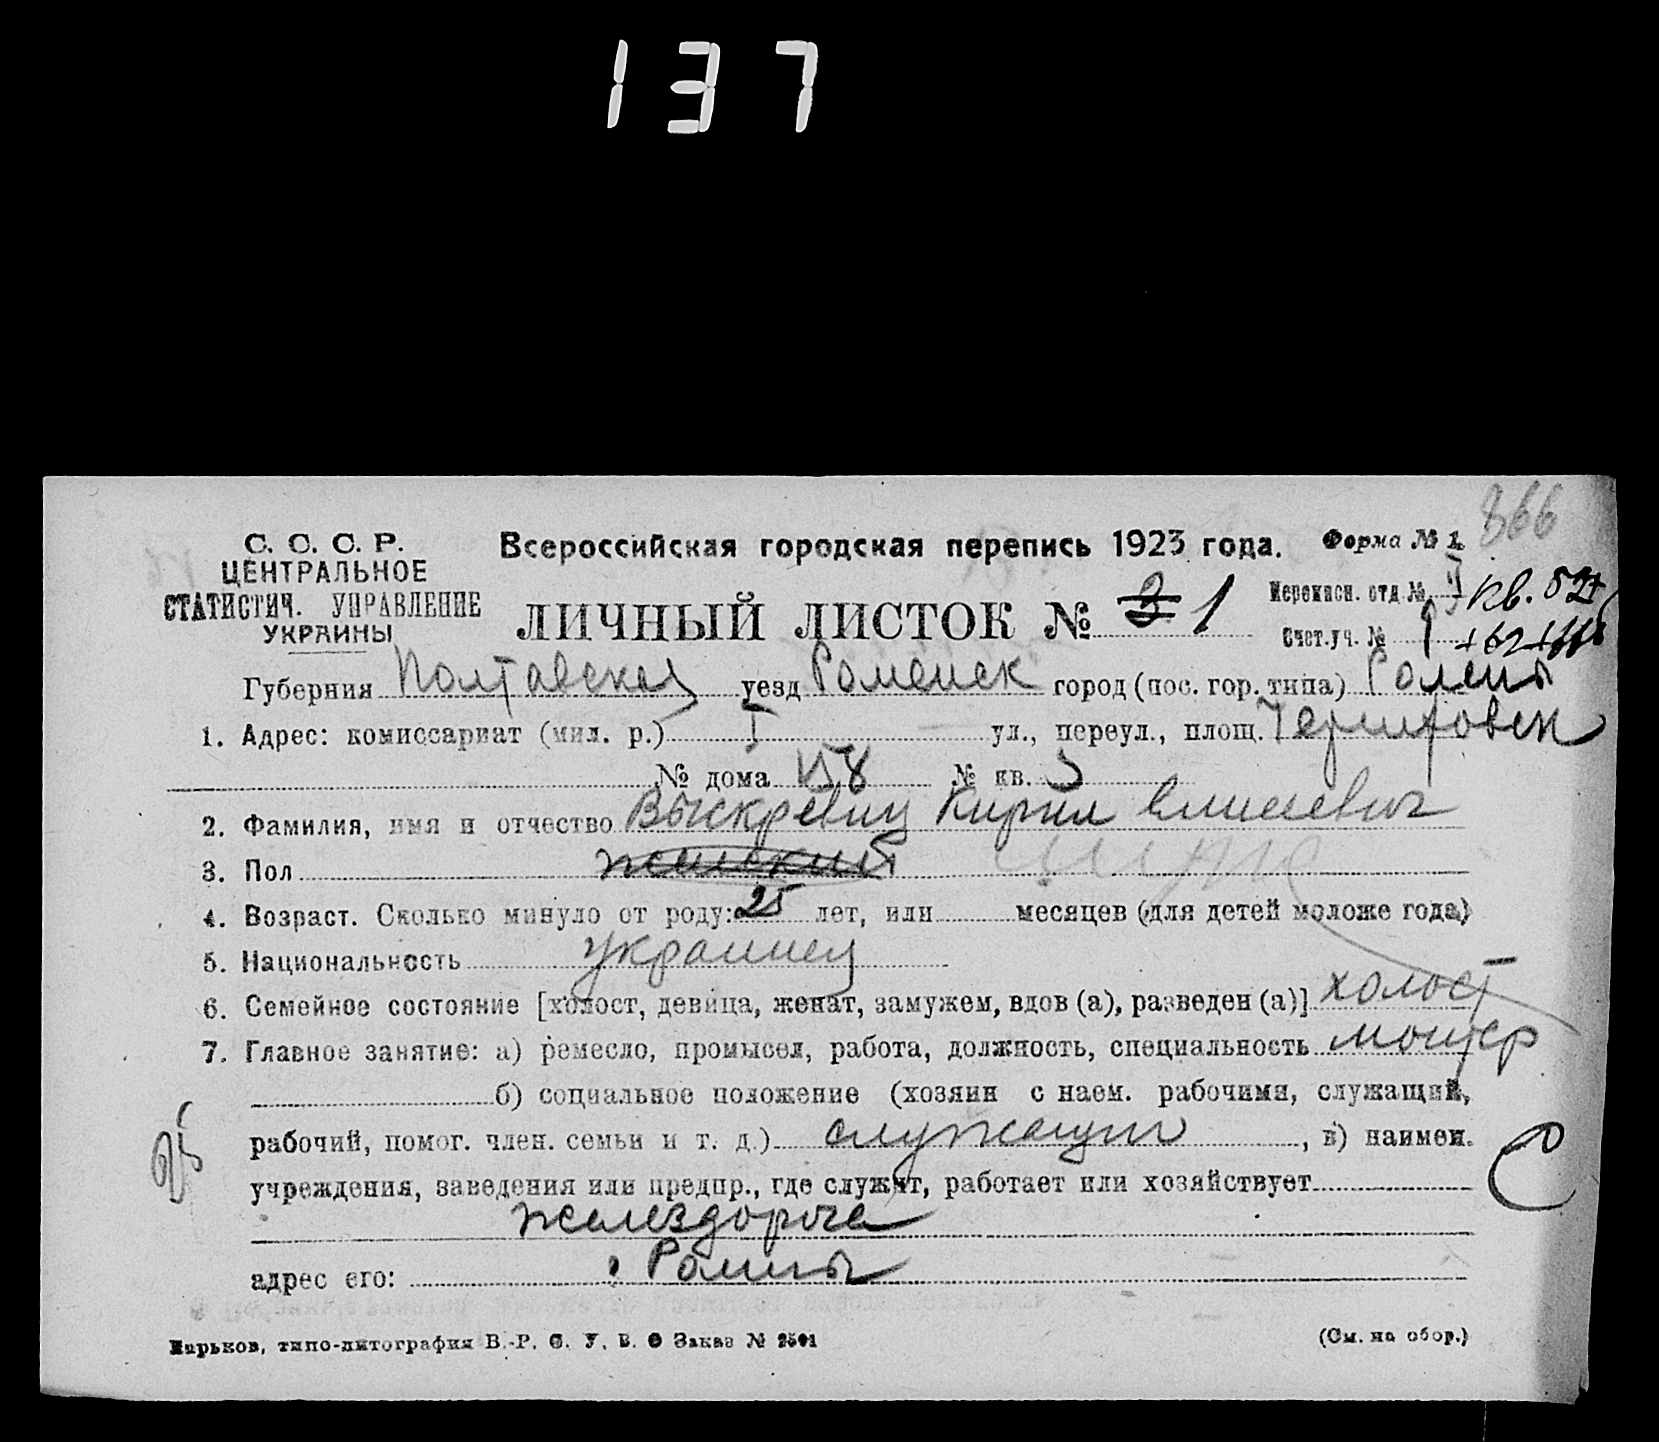 137
866
С. С. С. Р.
ЦЕНТРАЛЬНОЕ
СТАТИСТИЧ. УПРАВЛЕНИЕ
УКРАИНЫ
Всероссийская городская перепись 1923 года.
Форма № 1
ЛИЧНЫЙ ЛИСТОК № 3 1
Переписн. отд. № II кв. 52
Счет. уч. № 1
Губерния Полтавская уезд Роменск город (пос. гор. типа) Ромены
1. Адрес: комиссариат (мил. р.) I ул., переул., площ. Черниговск
№ дома 158 № кв. 3
2. Фамилия, имя и отчество Выскребиц Кирил
3. Пол женский муж
4. Возраст. Сколько минуло от роду: 25 лет, или месяцев (для детей моложе года)
5. Национальность украинец
6. Семейное состояние [холост, девица, женат, замужем, вдов (а), разведен (а)] холост
7. Главное занятие: а) ремесло, промысел, работа, должность, специальность монтер
б) социальное положение (хозяин с наем. рабочими, служащий,
рабочий, помог. член. семьи и т. д.) служащий, в) наимен.
учреждения, заведения или предпр., где служит, работает или хозяйствует
желездорога
адрес его: г Ромны
Харьков, типо-литография В.-Р. С. У. В. О Заказ № 2501
(См. на обор.)